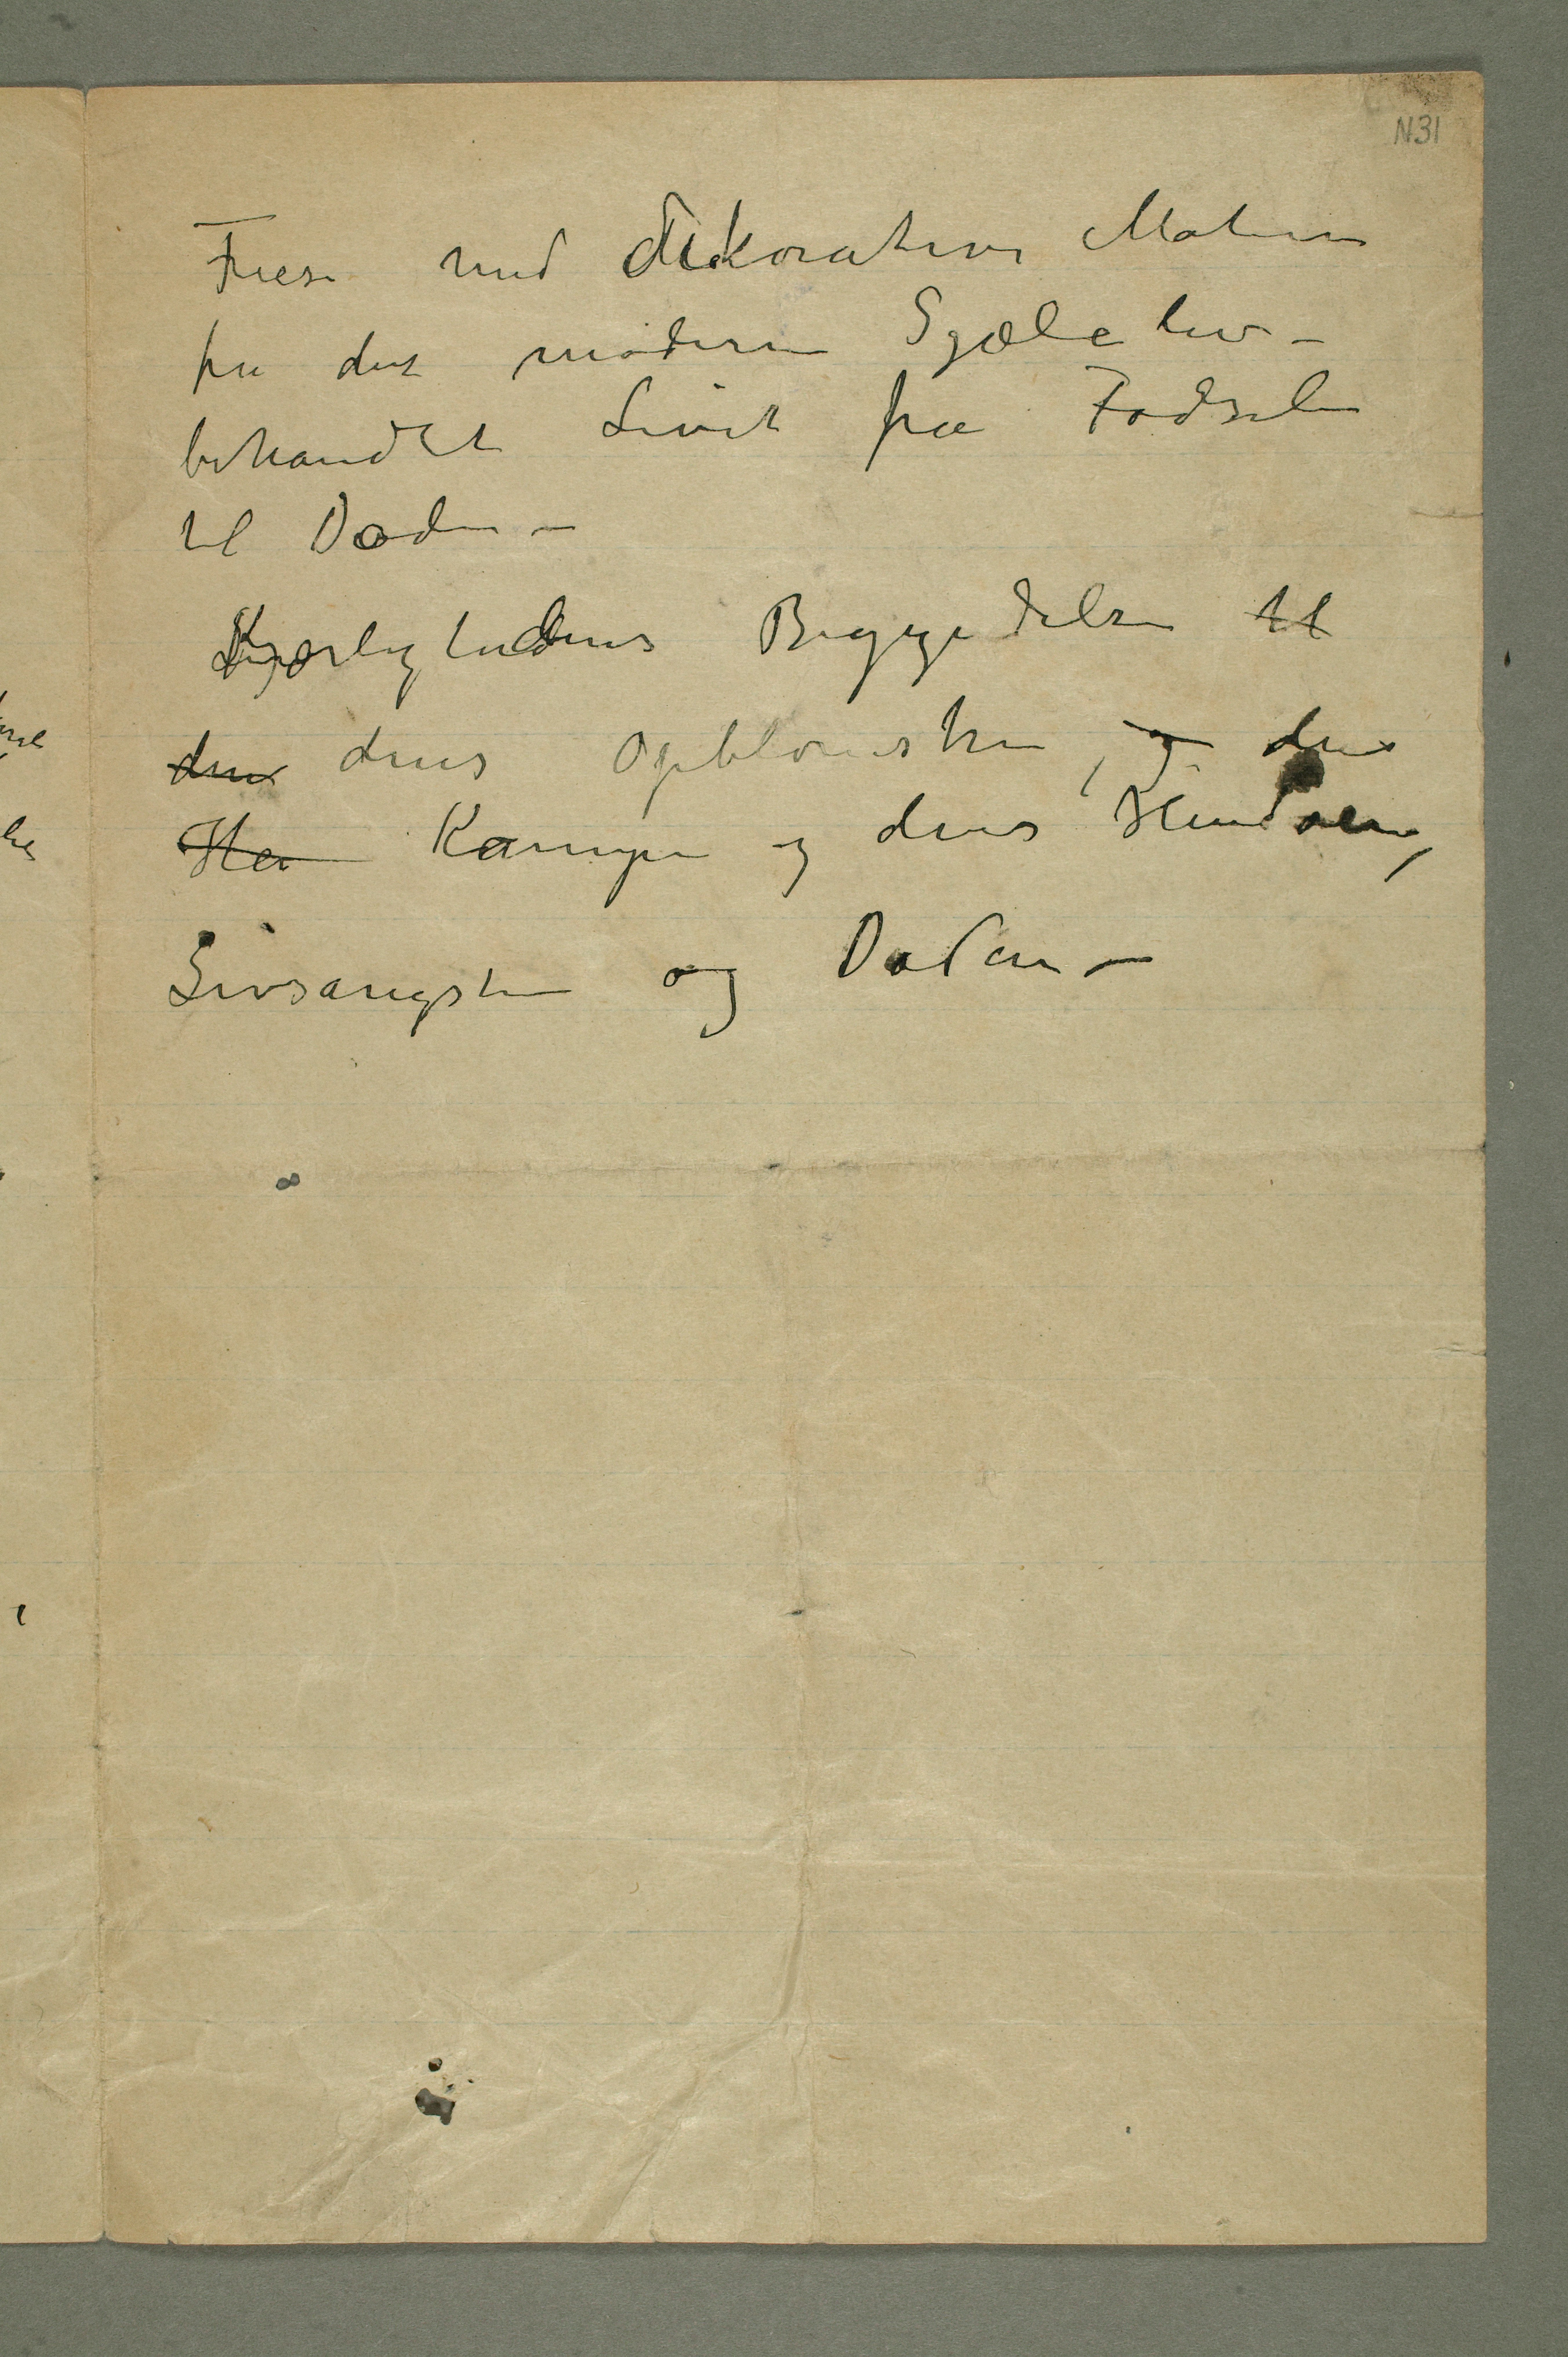 N31
Frese med dekorative Motiver
fra det moderne Sjæleliv –
behandlet Livet fra Fødselen
til Døden –
Kjærlighedens Begyndelse til
den dens Opblomstren, og dens
Kampe og dens Hendøen,
Livsangsten og Døden –